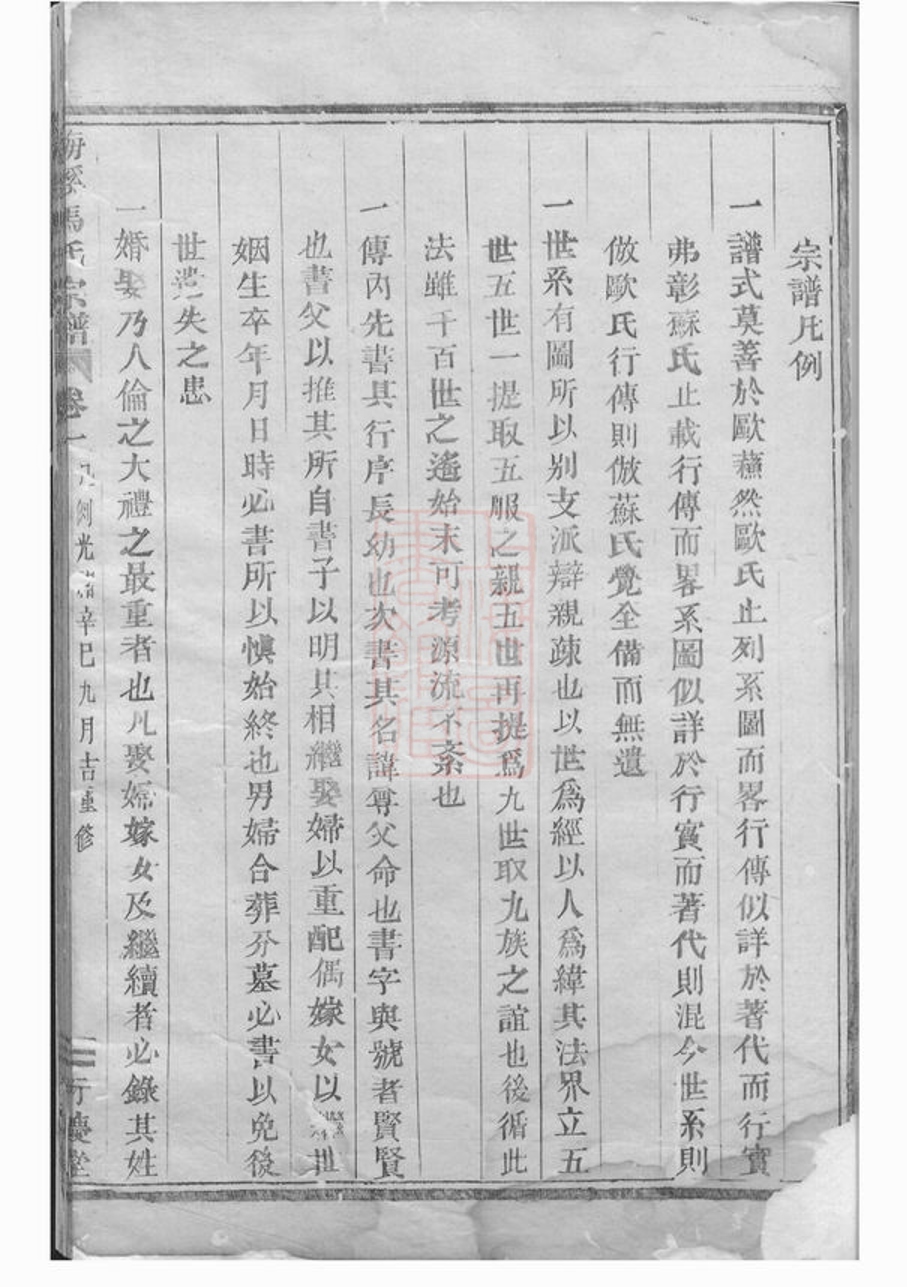 宗譜凡例
一譜式莫善於歐蘇然歐氏止列系圖而畧行傳似詳於著代而行實
弗彰蘇氏止載行傳而畧系圖似詳於行實而著代則混今世系則
倣歐氏行傳則倣蘇氏覺全備而無遺
一世系有圖所以別支派辯親疎也以世爲經以人爲緯其法界立五
世五世一提取五服之親五世再提爲九世取九族之誼也後循此
法雖千百世之遙始末可考源流不紊也
一傳內先書其行序長幼也次書其名諱尊父命也書字與號者賢賢
也書父以推其所自書子以明其相繼娶婦以重配偶嫁女以世
姻生卒年月日時必書所以愼始終也男婦合葬分墓必書以免後
世遺失之患
一婚娶乃人倫之大禮之最重者也凡娶婦嫁女及繼續者必錄其姓
海溪馬氏宗譜 卷一 凡例光緒辛巳九月吉重修 行慶堂